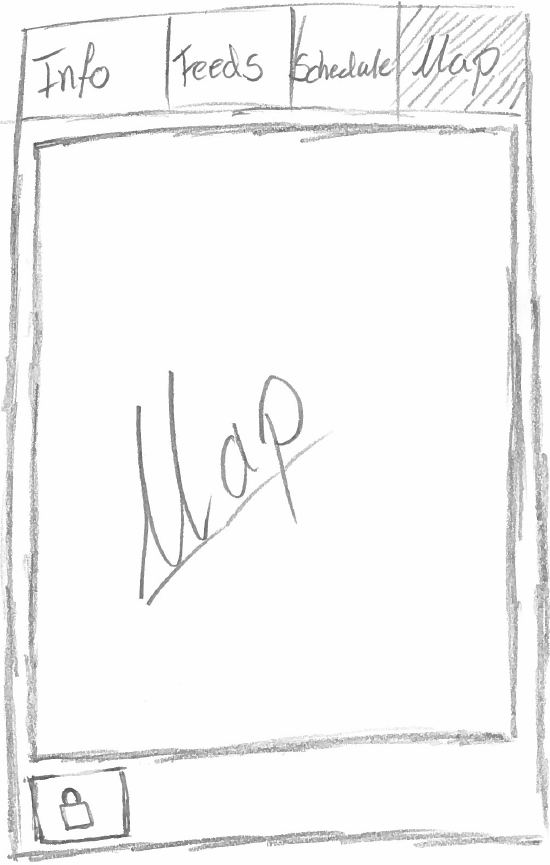 Info
Feeds
Schedule
Map
Map